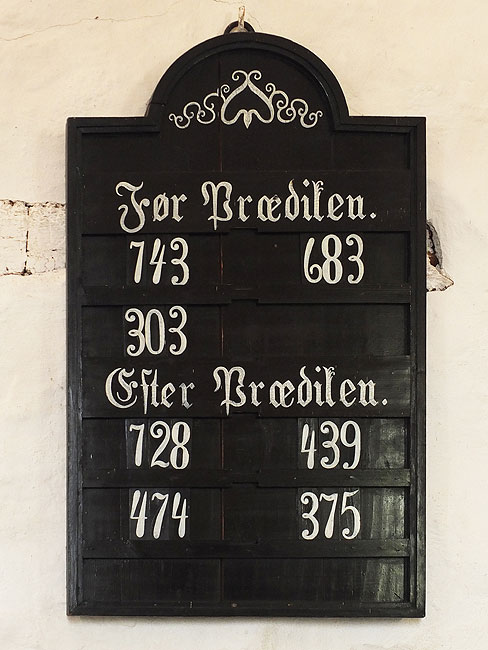 Før Prædiken.
743 683
303
Efter Prædiken.
728 439
474 375